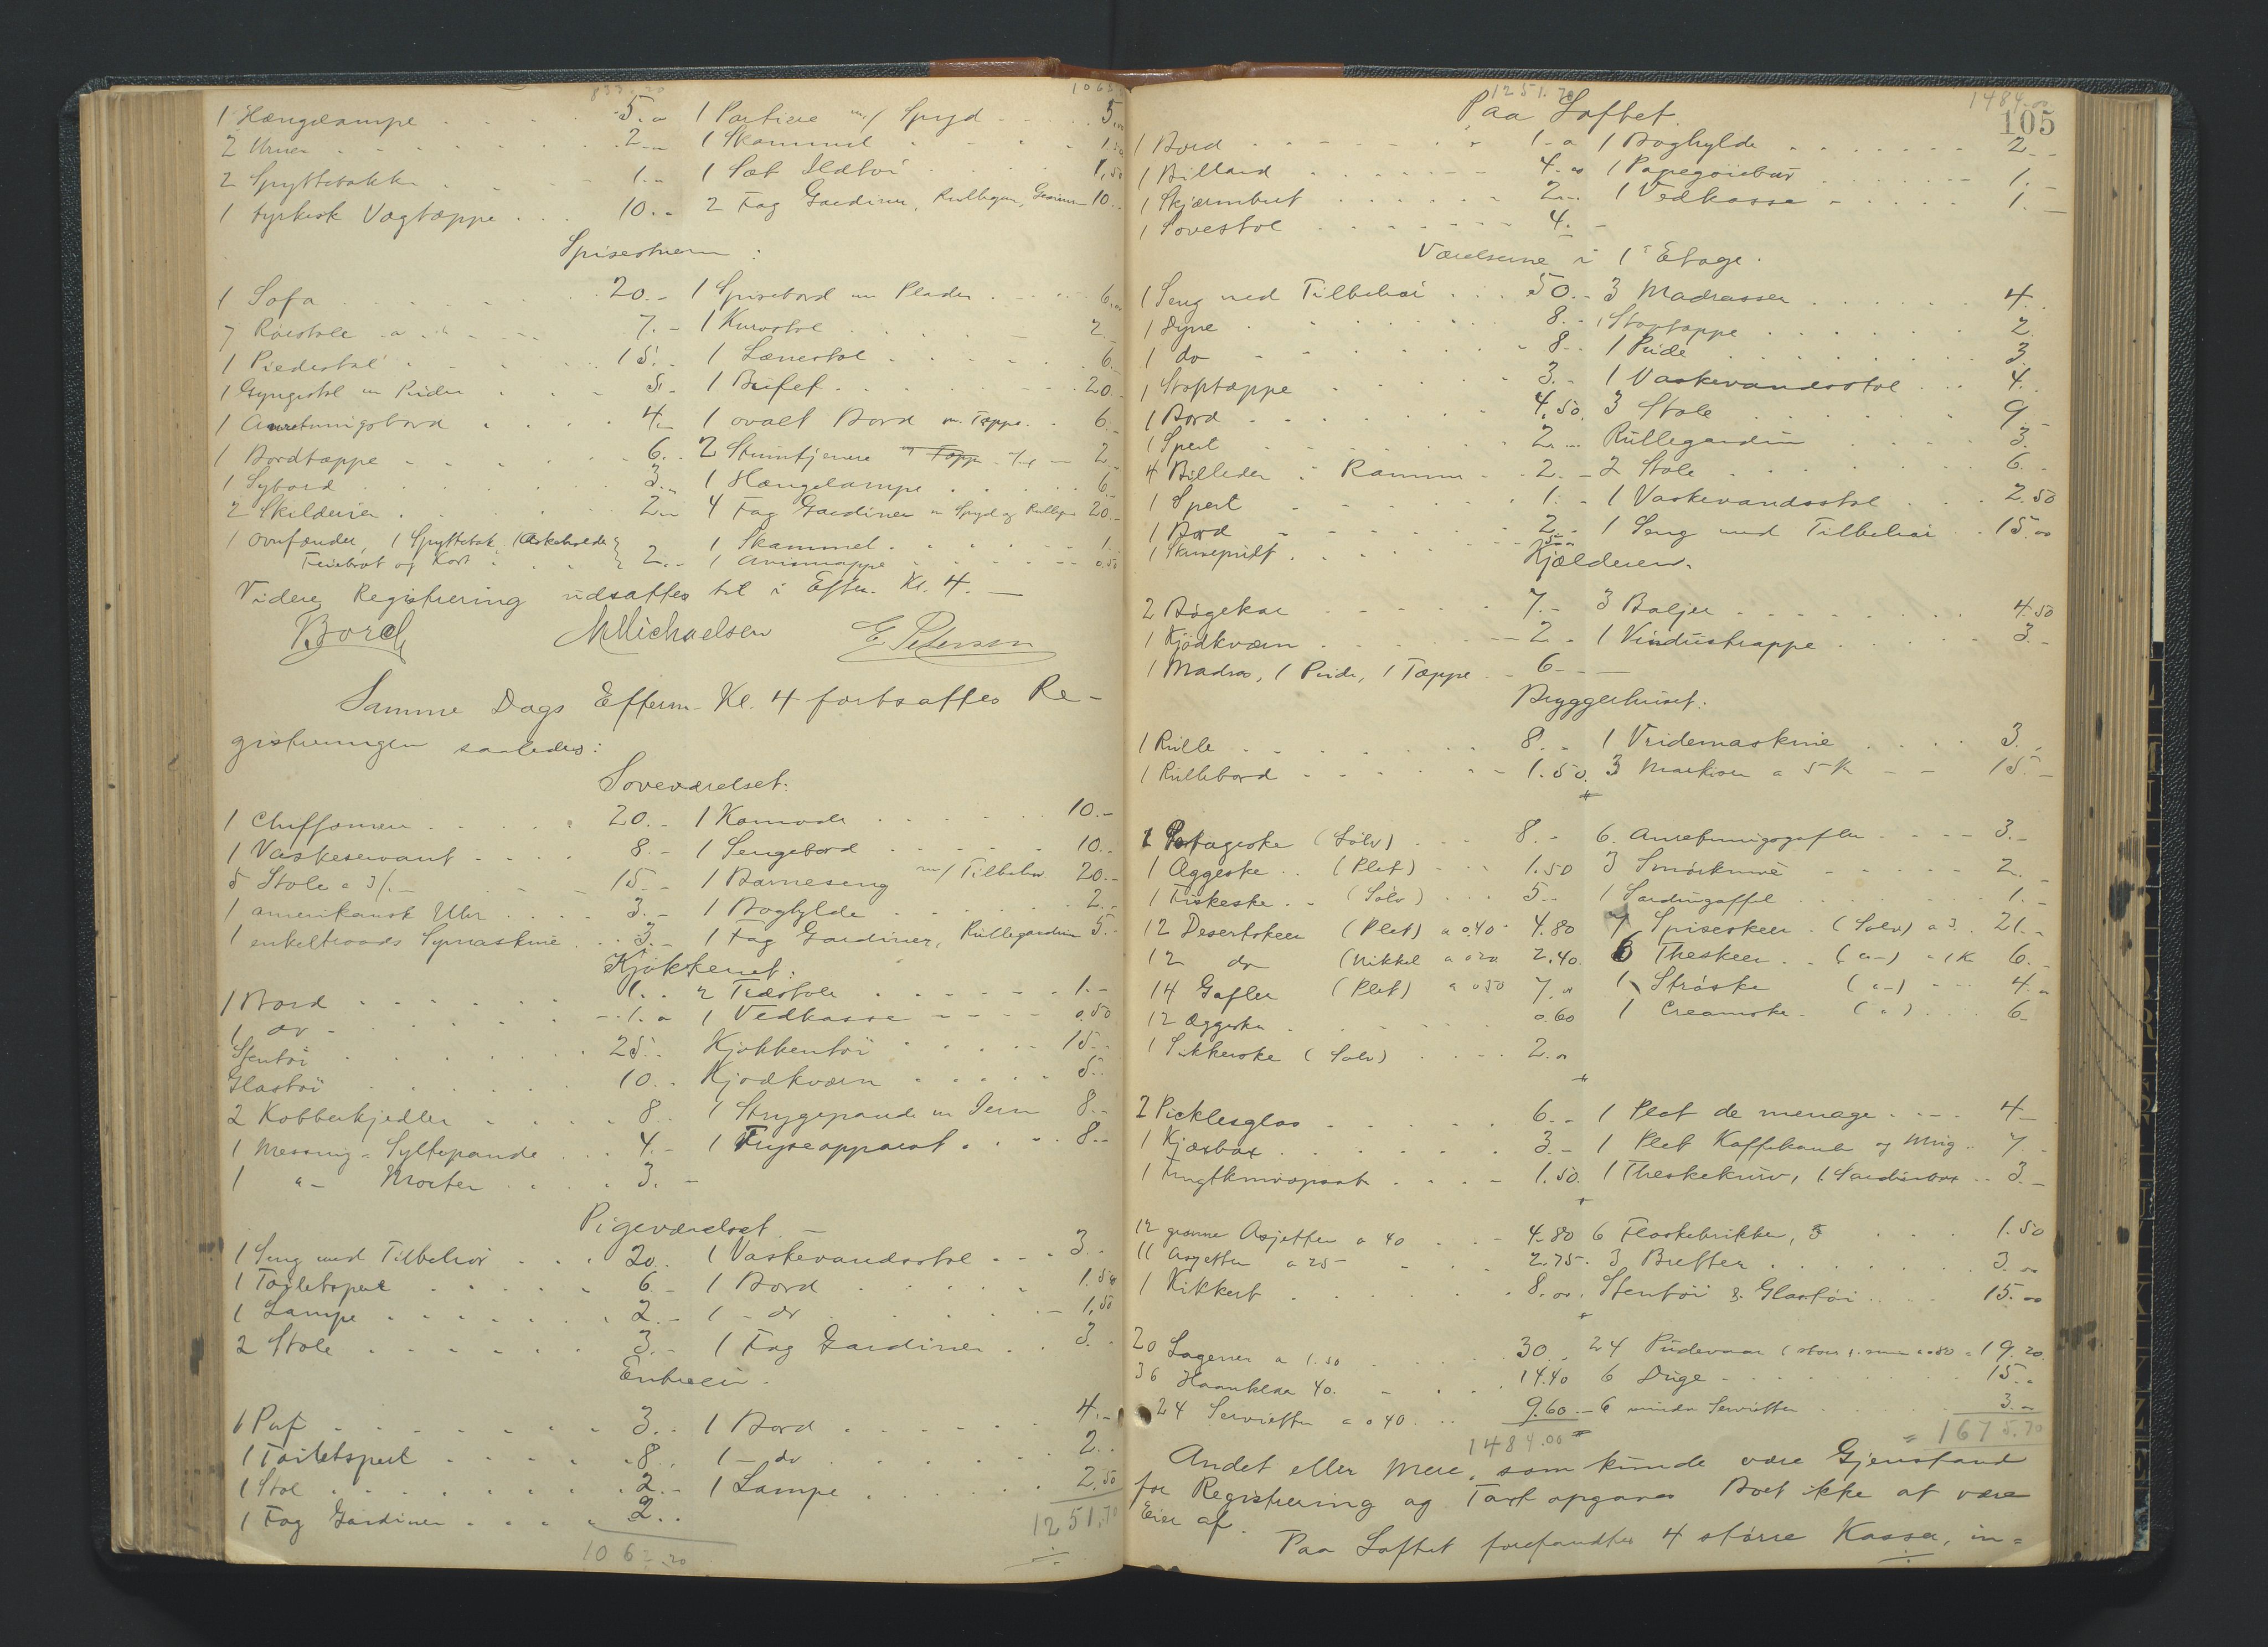 1062
1 Hængelampe 5.- 1 Portiere m/ Spyd 5.-
2 Urner 2.- 1 Skammel 1.50
2 Spyttebakker 1.- 1 Sæt Ildtøi 1.50
1 tyrkisk Vægtæppe 10.- 2 Fag Gardiner, Rullegar, 10.-
Spisestuen:
1 Sofa 20.- 1 Spisebord m Plader 6.-
7 Rørstole 7.- 1 Kurvstol 2.-
1 Piedestal 15.- 1 Lænestol 6.-
1 Gyngestol m Puder 5.- 1 Buffet 20.-
1 Anretningsbord 4.- 1 ovalt Bord m. Tæppe 6.-
1 Bordtæppe 6.- 2 Stumtjenere 2.-
1 Sybord 3.- 1 Hængelampe 6.-
2 Skilderier 2.- 4 Fag Gardiner m Spyd og Rullegr 20.-
1 Ovnfænder, 1 Spyttebak, 1 Askebolde 1 Skammel 1.-
Feiebrøt og Kost 2.- 1 Avismappe 0.50
Videre Registrering udsattes til i Efterm. Kl. 4.
Borch M Michaelsen E. Petersen
Samme Dags Efterm. Kl. 4 fortsattes Re-
gistreringen saaledes:
Soveværelset:
1 Chiffonier 20.- 1 Komode 10.-
1 Vaskeservant 8.- 1 Sengebord 10.-
5 Stole a 3/- 15.- 1 Barneseng m/ Tilbehør 20.-
1 amerikansk Uhr 3.- 1 Boghylde 2.-
1 enkeltraads Symaskine 3.- 1 Fag Gardiner, Rullegardin 5.-
Kjøkkenet:
1 Bord 1.- 2 Træstole 1.-
1 do 1.- 1 Vedkasse 0.50
Stentøi 25.- Kjøkkentøi 15.-
Glastøi 10.- Kjødkværn 5.-
2 Kobberkjedler 8.- 1 Strygepande m Jern 8.-
1 Messing-Syltepande 4.- 1 Fryseapparat 8.-
1 "- Morter 3.-
Pigeværelset
1 Seng med Tilbehør 20.- 1 Vaskevandsstol 3.-
1 Toiletspeil 6.- 1 Bord 1.50
1 Lampe 2.- 1 - do 1.50
2 Stole 3.- 1 Fag Gardiner 3.-
Entreen.
1 Puf 3.- 1 Bord 4.-
1 Toiletspeil 8.- 1 - do 2.-
1 Stol 2.- 1 Lampe 2.50
1 Fag Gardiner 2.- 1251.70
1062.20
1251.70 1484.00
Paa Loftet. 105
1 Bord 1.- 1 Boghylde 2.-
1 Billard 4.- 1 Papegøiebur 1.-
1 Skjærmbret 2.- 1 Vedkasse 1.-
1 Sovestol 4.-
Værelserne i 1 Etage.
1 Seng med Tilbehør 50.- 3 Madrasser 4.
1 Dyne 8.- 1 Stoptæppe 2.
1 do 8.- 1 Pude 3.
1 Stoptæppe 3.- 1 Vaskevandsstol 4.
1 Bord 4.50. 3 Stole 9.-
1 Speil 2.- Rullegardin 3.
4 Billeder i Ramme 2.- 2 Stole 6.-
1 Speil 1.- 1 Vaskevandsstol 2.50
1 Bord 2.- 1 Seng med Tilbehør 15.00
1 Skrivepult 5.-
Kjælderen.
2 Bøgekar 7.- 3 Baljer 4.50
1 Kjødkværn 2.- 1 Vindustrappe 3.-
1 Madras, 1 Pude, 1 Tæppe 6.-
Bryggerhuset.
1 Rulle 8.- 1 Vridemaskine 3.-
1 Rullebord 1.50. 3 a 5 Kr 15.-
1 Potageske (Sølv) 8.- 6 Anretningsgafler 3.-
1 Æggeske (Plet) 1.50 3 Smørknive 2.-
1 Fiskeske (Sølv) 5.- 1 Sardingaffel 1.-
12 Desertskeer (Plet) a 0.40 4.80 7 Spiseskeer (Sølv) a 3. 21.-
12 do (Nikkel a 0 20 2.40. 6 Theskeer ("-) a 1 Kr 6.-
14 Gafler (Plet) a 0 50 7.00 1 Strøske ("-) 4.-
12 Æggeske 0.60 1 Creamske (") 6.-
1 Sukkerske (Sølv) 2.00
2 Picklesglas 6.- 1 Plat de menage 4.-
1 Kjæxbox 3.- 1 Plet Kaffekande og Mug 7.-
1 Frugtknivopsat 1.50. 1 Theskekurv, 1 Sardinbox 3.-
12 grønne Asjetter a 40 4.80 6 Flaskebrikker, 1.50
11 Asjetter a 25 2.75. 3 Bretter 3.00
1 Kikkert 8.00. Stentøi & Glastøi 15.00
20 Lagener a 1.50 30.- 24 Pudevaar 19.20.
36 Haanklær 40. 14.40 6 Duge 15.-
24 Servietter a 0 40. 9.60 - 6 mindre Servietter 3.-
1484.00 = 1675.70
Andet eller mere, som kunde være Gjenstand
for Registrering og Taxt opgaves Boet ikke at være
Eier af.
Paa Loftet forefandtes 4 større Kasser, in=